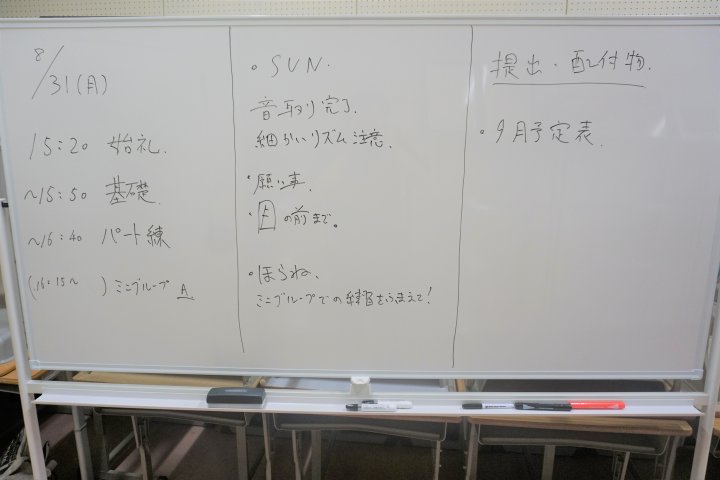 8/31(月)
15:20 始礼.
~15:50 基礎.
~16:40 パート練
(16:15~ ) ミニグループ A
・SUN.
音取り完了.
細かいリズム注意.
・願い事.
・E の前まで。
・ほらね、
ミニグループでの練習をふまえて!
提出・配付物.
・9月予定表.